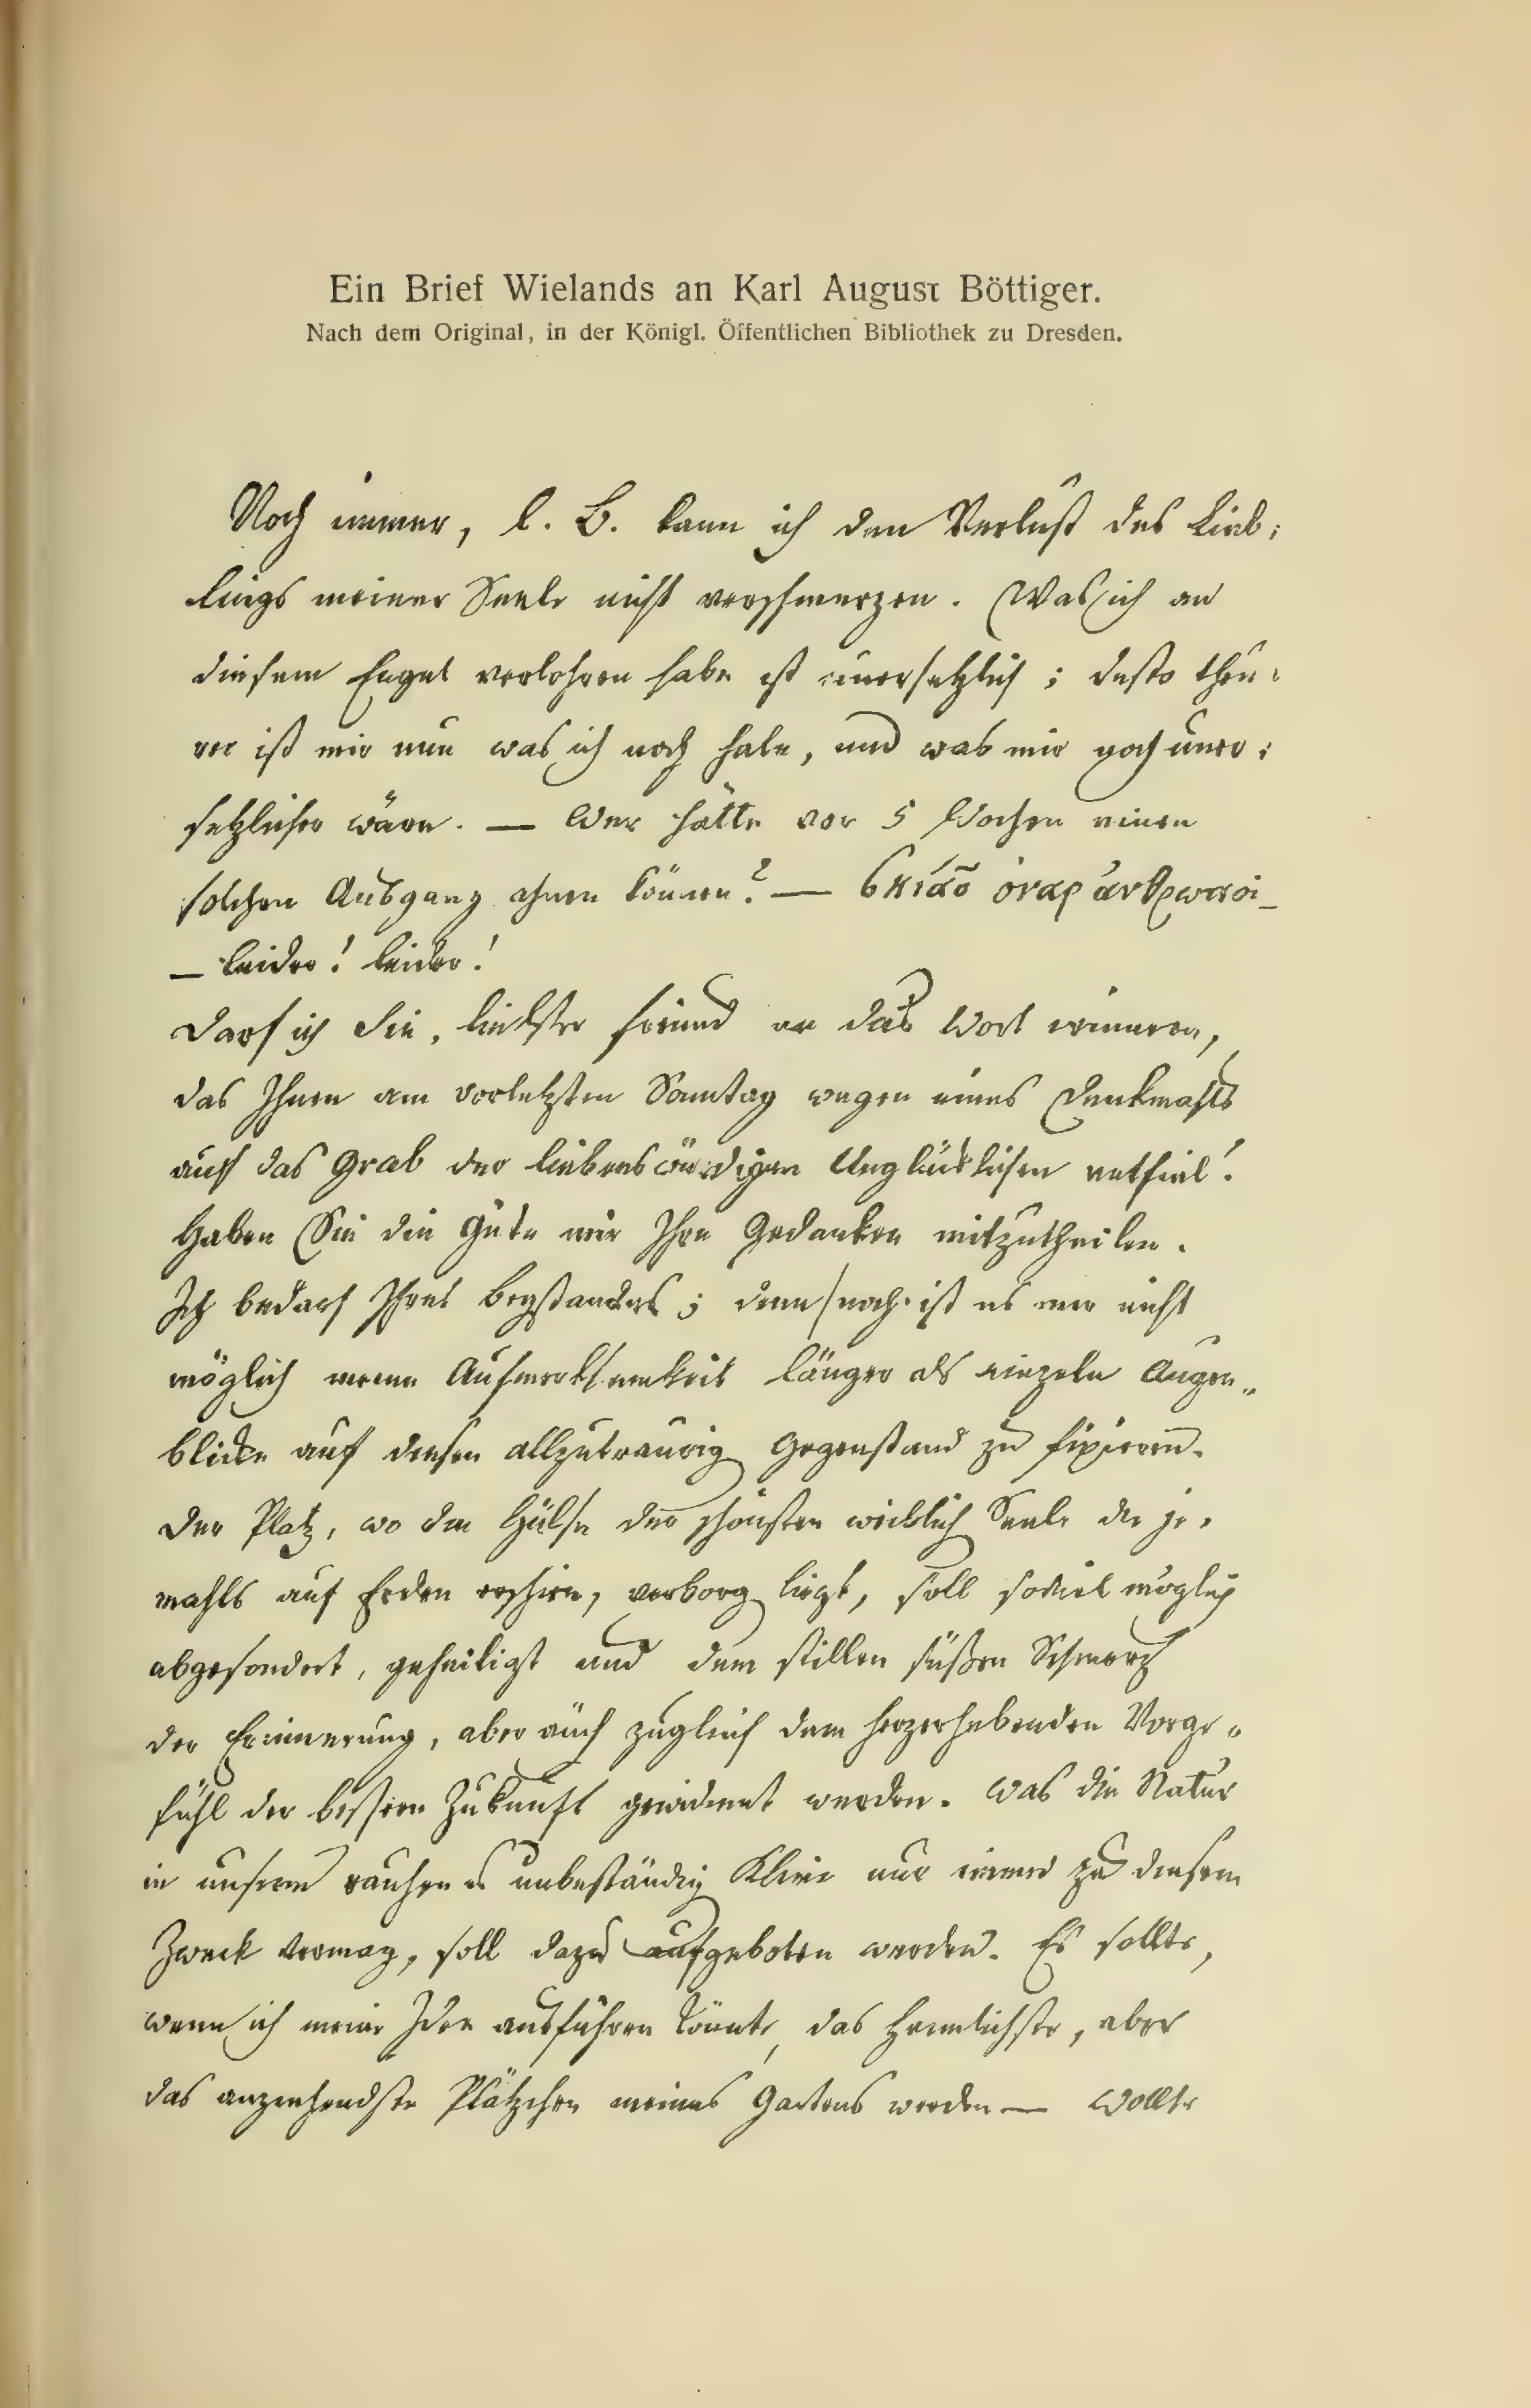 Ein Brief Wielands an Karl August Böttiger.
Nach dem Original, in der Königl. Öffentlichen Bibliothek zu Dresden.
Noch immer, l. B. kann ich den Verlust des Lieb-
lings meiner Seele nicht verschmerzen. Was ich an
diesem Engel verlohren habe ist unersetzlich; desto theu-
rer ist mir nun was ich noch habe, und was mir noch uner-
setzlicher wäre. — Wer hätte vor 5 Wochen einen
solchen Ausgang ahnen können? — σκιᾶς ὄναρ ἄνθρωποι —
— leider! leider!
Darf ich Sie, liebster Freund an das Wort erinnern,
das Ihnen am vorletzten Sonntag wegen eines Denkmahls
auf das Grab der liebenswürdigen Unglücklichen entfiel!
Haben Sie die Güte mir Ihre Gedanken mitzutheilen.
Ich bedarf Ihres Beystandes; denn noch ist es mir nicht
möglich meine Aufmerksamkeit länger als einzeln Augen-
blicke auf diesen allzutraurig Gegenstand zu fixieren.
Der Platz, wo die Hülse der schönsten weiblich Seele die je-
mahls auf Erden erschien, verborg liegt, soll soviel möglich
abgesondert, geheiligt und dem stillen süßen Schmerz
der Erinnerung, aber auch zugleich dem herzerhebenden Vorge-
fühl der bessern Zukunft gewidmet werden. Was die Natur
in unserm rauhen u unbeständig Klima nur immer zu diesem
Zweck vermag, soll dazu aufgeboten werden. Es sollte,
wenn ich meine Idee ausführen könnte, das heimlichste, aber
das anziehendste Plätzchen meines Gartens werden — Wollte